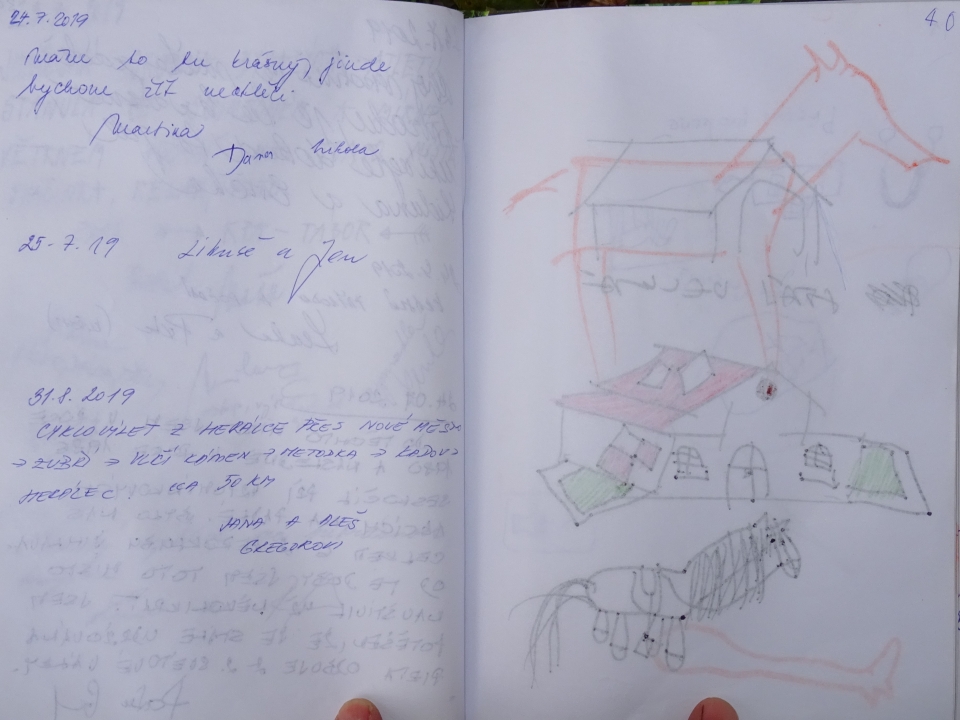 24.7.2019
Máme to tu krásný, jinde
bychom žít nechtěli
Martina
Dana Nikola
25-7.19 Libuše a Jan
31.8.2019
CYKLOVÝLET Z HERÁLCE PŘES NOVÉ MĚSTO
→ ZUBŘÍ → VLČÍ KÁMEN → METODKA → KADOV →
HERÁLEC CCA 50 KM
JANA A ALEŠ
GREGOROVI
40